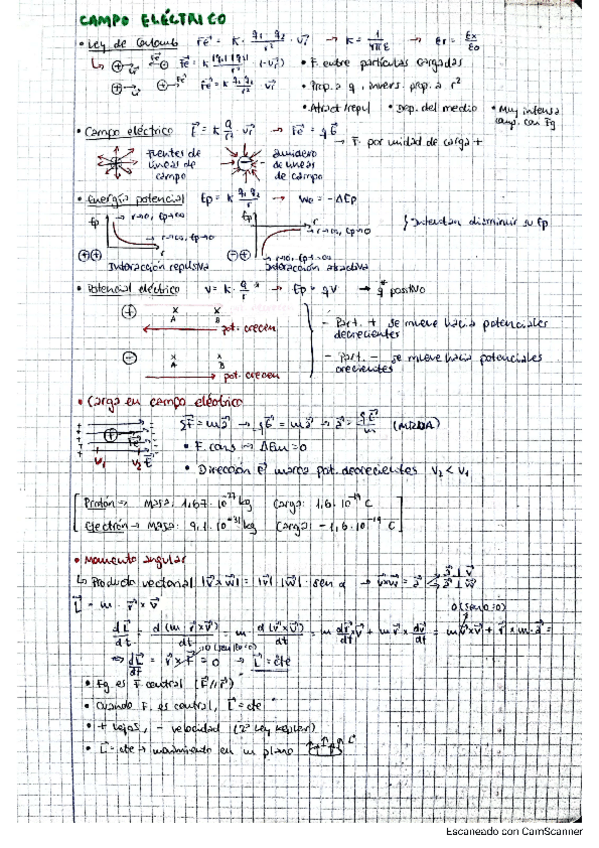 CAMPO ELÉCTRICO
• Ley de Coulomb F⃗e = K · q₁ · q₂ / r² · u⃗r → K = 1/4πε → εr = εx/ε₀
F⃗e = K |q₁||q₂| / r² (-u⃗r) • F. entre partículas cargadas
F⃗e = K q₁ q₂ / r² · u⃗r • Prop. a q, invers. prop. a r²
• Atract/repul • Dep. del medio • Muy intensa comp. con Fg
• Campo eléctrico E⃗ = K q/r² · u⃗r → F⃗e = q E⃗
→ F. por unidad de carga +
Fuentes de líneas de campo
Sumidero de líneas de campo
• Energía potencial Ep = K q₁ q₂ / r → We = -ΔEp
Ep r→0, Ep→∞ r→∞, Ep→0 r
Ep r r→∞, Ep→0 r→0, Ep→-∞
} Intentan disminuir su Ep
⊕⊕ Interacción repulsiva
⊖⊕ Interacción atractiva
• Potencial eléctrico V = K · q/r → Ep = qV → q positivo
⊕ x A x B
pot. crecen
- Part. + se mueve hacia potenciales decrecientes
⊖ x A x B
pot. crecen
- Part. - se mueve hacia potenciales crecientes
• Carga en campo eléctrico
ΣF⃗ = m a⃗ → qE⃗ = m a⃗ → a⃗ = qE⃗/m (MRUA)
• F. cons → ΔEm = 0
• Dirección E⃗ marca pot. decrecientes V₂ < V₁
F⃗e V₁ V₂ E⃗
[ Protón → Masa: 1,67·10⁻²⁷ kg Carga: 1,6·10⁻¹⁹ C
Electrón → Masa: 9,1·10⁻³¹ kg Carga: -1,6·10⁻¹⁹ C ]
• Momento angular
↳ Producto vectorial |v⃗ x w⃗| = |v⃗| · |w⃗| · sen α → v⃗xw⃗ = a⃗ a⃗ ⊥ v⃗ a⃗ ⊥ w⃗
L⃗ = m · r⃗ x v⃗
0 (sen 0=0)
dL⃗/dt = d(m · r⃗xv⃗)/dt = m · d(r⃗xv⃗)/dt = m dr⃗/dt x v⃗ + m r⃗ x dv⃗/dt = m v⃗xv⃗ + r⃗ x m·a⃗ =
⇒ dL⃗/dt = r⃗ x F⃗ = 0 → L⃗ = cte
• Fg es F. central (F⃗ // r⃗)
• Cuando F. es central, L⃗ = cte
• + lejos, - velocidad (2ª Ley Kepler)
• L⃗ = cte → movimiento en un plano L⃗
Escaneado con CamScanner